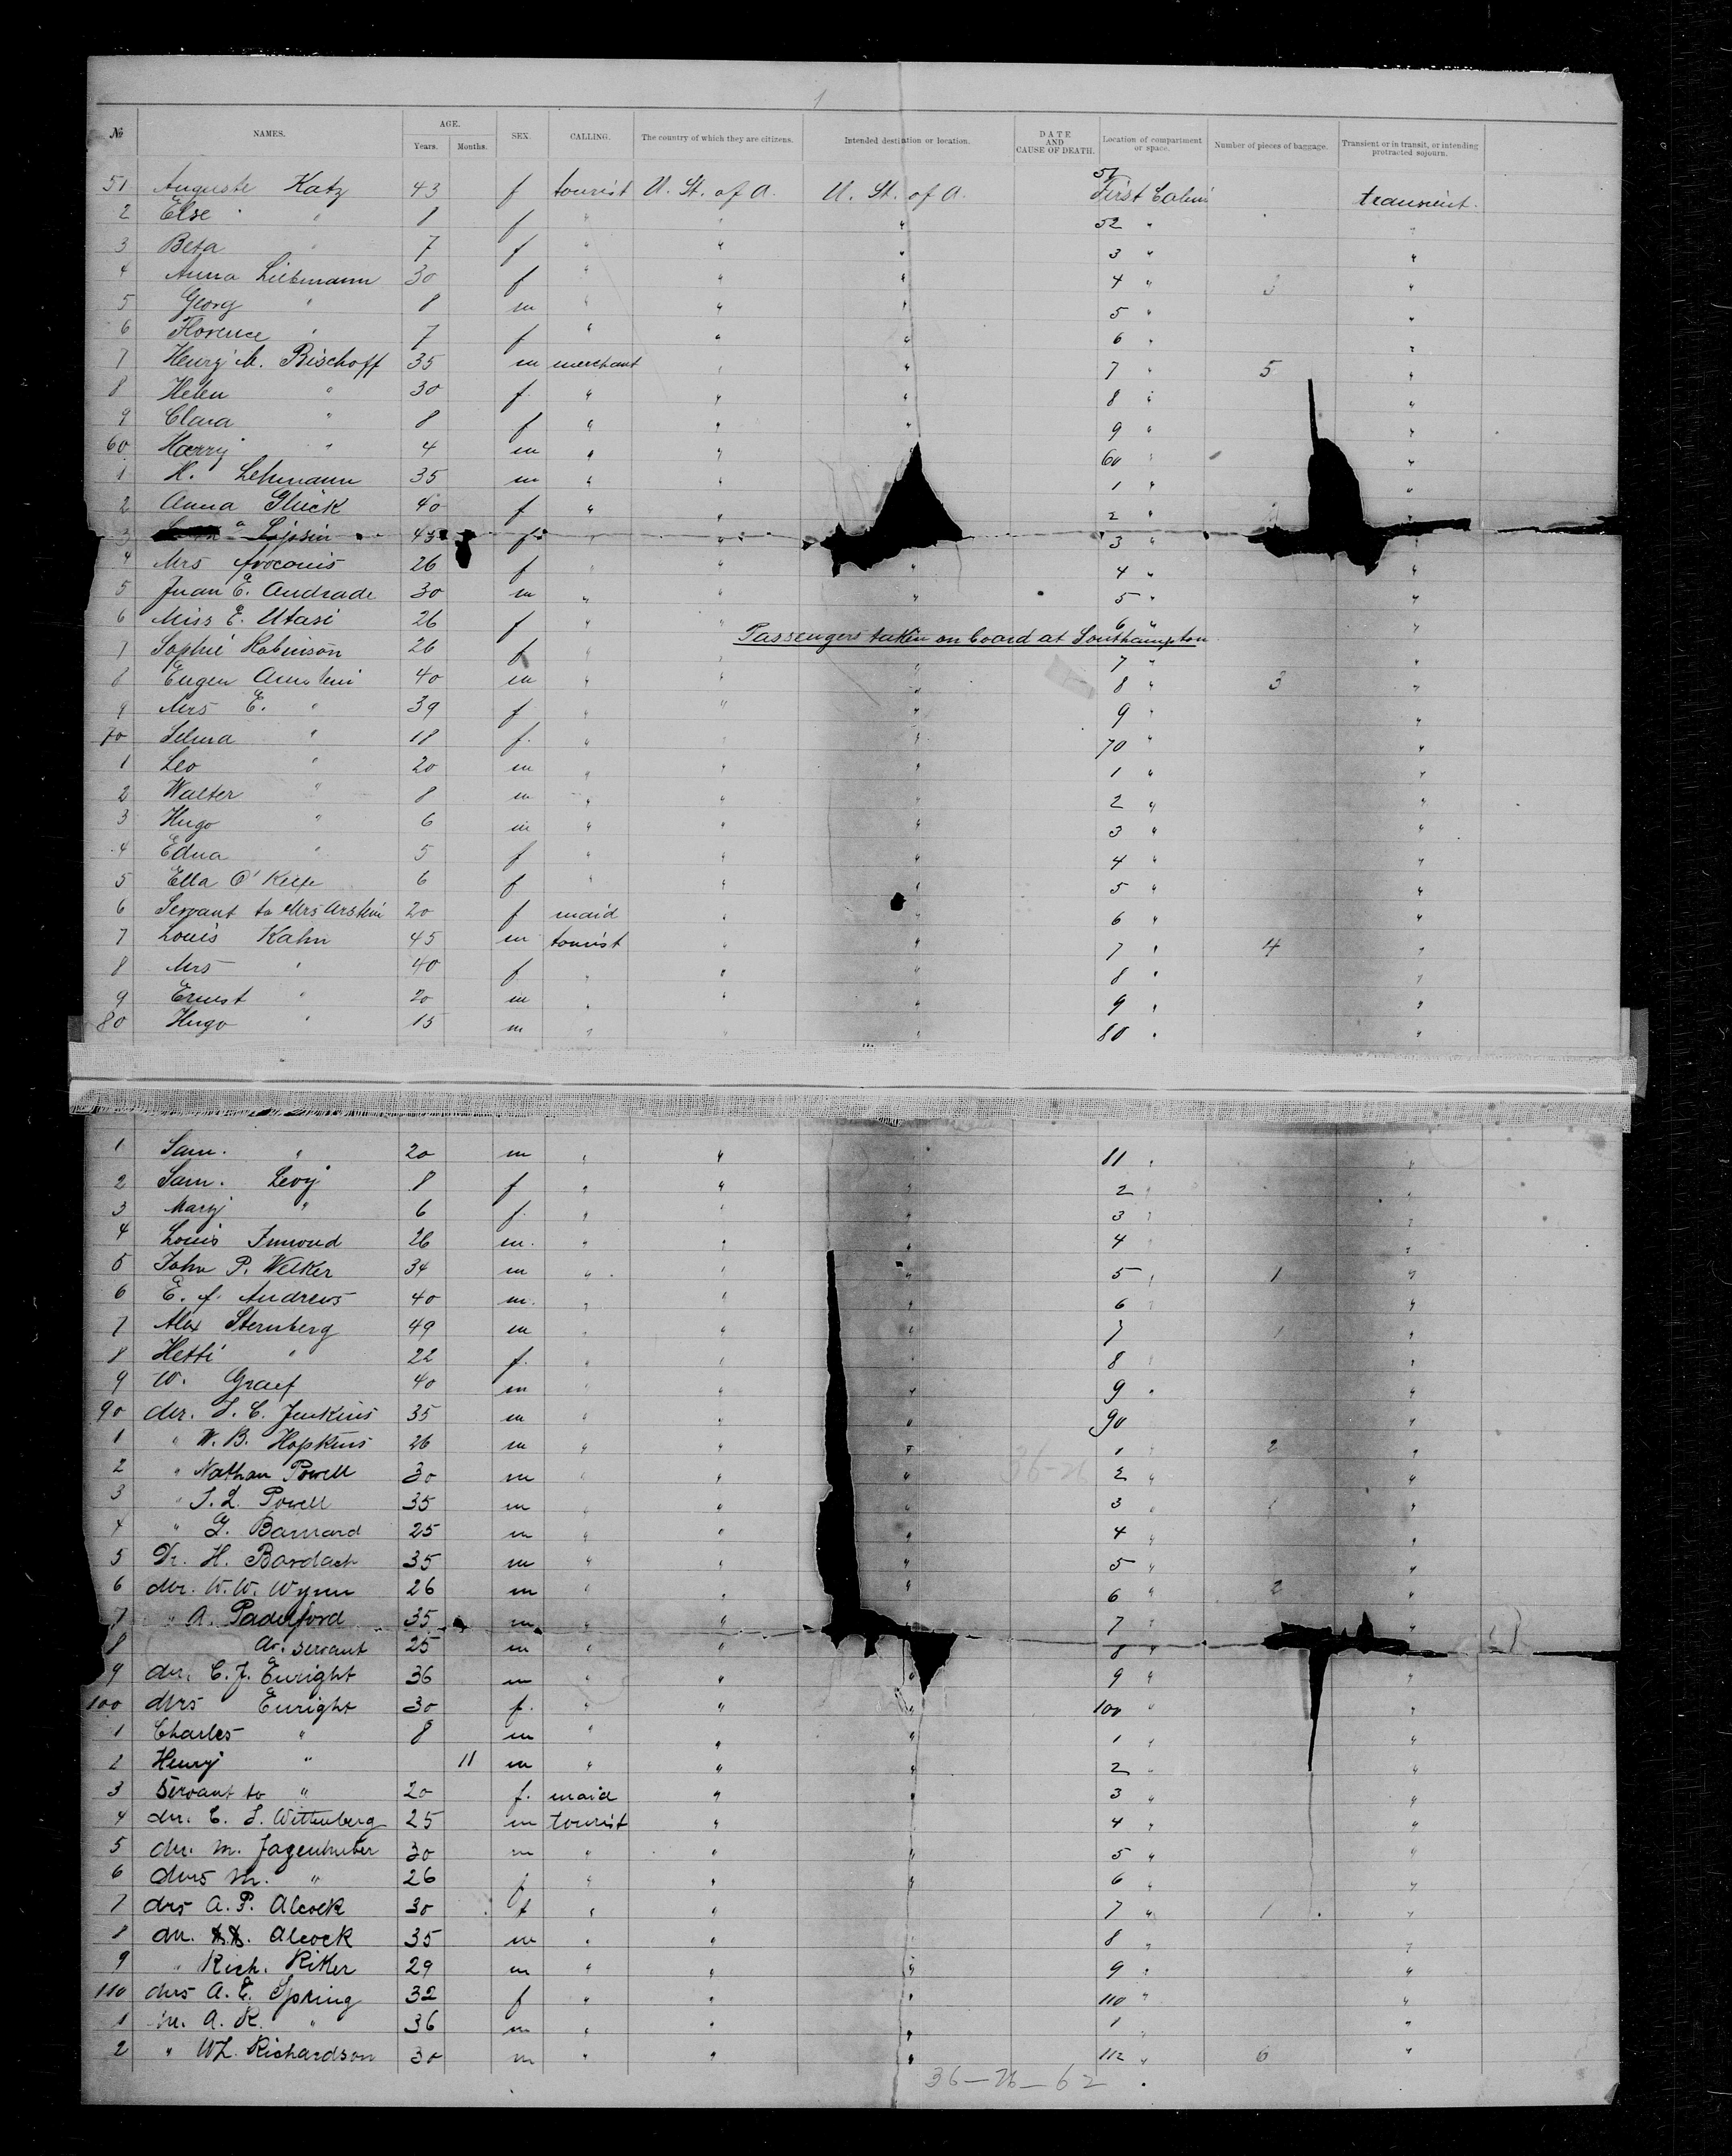 1
№ NAMES. AGE. Years. Months. SEX. CALLING. The country of which they are citizens. Intended destination or location. DATE AND CAUSE OF DEATH. Location of compartment or space. Number of pieces of baggage. Transient or in transit, or intending protracted sojourn.
51 Auguste Katz 43 f tourist U. St. of A. U. St. of A. 51 First Cabin transient.
2 Else " 8 f " " " 52 " "
3 Beta " 7 f " " " 3 " "
4 Anna Liebmann 30 f " " " 4 " 3 "
5 Georg " 8 m " " " 5 " "
6 Florence " 7 f " " " 6 " "
7 Henry M. Bischoff 35 m merchant " " 7 " 5 "
8 Helen " 30 f " " " 8 " "
9 Clara " 8 f " " " 9 " "
60 Harry " 4 m " " 60 " "
1 H. Lehmann 35 m " " 1 " "
2 Anna Glück 40 f " " 2 " "
3 Lipsin 43 f " " 3 " "
4 Mrs 26 f " " " 4 " "
5 Juan E. Andrade 30 m " " " 5 " "
6 Miss E. Utasi 26 f " " 6 " "
Passengers taken on board at Southampton
7 Sophie Robinson 26 f " " " 7 " "
8 Eugen Arnstein 40 m " " " 8 " 3 "
9 Mrs E. " 39 f " " " 9 " "
70 Selma " 18 f. " " " 70 " "
1 Leo " 20 m " " " 1 " "
2 Walter " 8 m " " " 2 " "
3 Hugo " 6 m " " " 3 " "
4 Edna " 5 f " " " 4 " "
5 Ella O'Keefe 6 f " " " 5 " "
6 Servant to Mrs Arstein 20 f maid " " 6 " "
7 Louis Kahn 45 m tourist " " 7 " 4 "
8 Mrs " 40 f " " " 8 " "
9 Ernest " 20 m " " " 9 " "
80 Hugo " 15 m " " " 80 " "
1 Sam. " 20 m " " " 81 " "
2 Sam. Levy 8 f " " " 2 " "
3 Mary " 6 f. " " " 3 " "
4 Louis 26 m. " " " 4 " "
5 John P. Welker 34 m " " " 5 " 1 "
6 E. f. Andrews 40 m. " " " 6 " "
7 Alex Sternberg 49 m " " " 7 " 1 "
8 Hetti " 22 f. " " " 8 " "
9 W. Graef 40 m " " " 9 " "
90 Mr. S. C. Jenkins 35 m " " " 90 "
1 " W. B. Hopkins 26 m " " " 1 " 2 "
2 " Nathan Powell 30 m " " " 36-26 2 " "
3 " S. L. Powell 35 m " " " 3 " "
4 " G. Barnard 25 m " " " 4 " "
5 Dr. H. Bardach 35 m " " " 5 " "
6 Mr. W. W. Wynn 26 m " " " 6 " 2 "
7 " A. Padelford 35 m " " 7 " "
8 servant 25 m " " 8 " "
9 Mr. C. J. Enright 36 m " " " 9 " "
100 Mrs Enright 30 f. " " " 100 " "
1 Charles " 8 m " " " 1 " "
2 Henry " 11 m " " " 2 " "
3 Servant to " 20 f. maid " " 3 " "
4 Mr. C. S. Wittenberg 25 m tourist " 4 " "
5 Mr. M. Jagenhuber 30 m " " " 5 " "
6 Mrs M. " 26 f " " " 6 " "
7 Mrs A. P. Alcock 30 f " " 7 " 1 "
8 Mr. Alcock 35 m " " 8 " "
9 " Rich. Riker 29 m " " " 9 " "
110 Mrs A. E. Spring 32 f " " " 110 " "
1 M. A. R. " 36 m " " " 1 " "
2 " W L. Richardson 30 m " " " 112 " 6 "
36-26-62